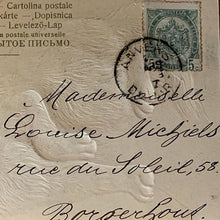 – Cartolina postale
kàrte – Dopisnica
– Levelező-Lap
postale universelle
ЫТОЕ ПИСЬМО.
ANVE
5
Mademoiselle
Louise Michiels
rue du Soleil, 58.
Borgerhout